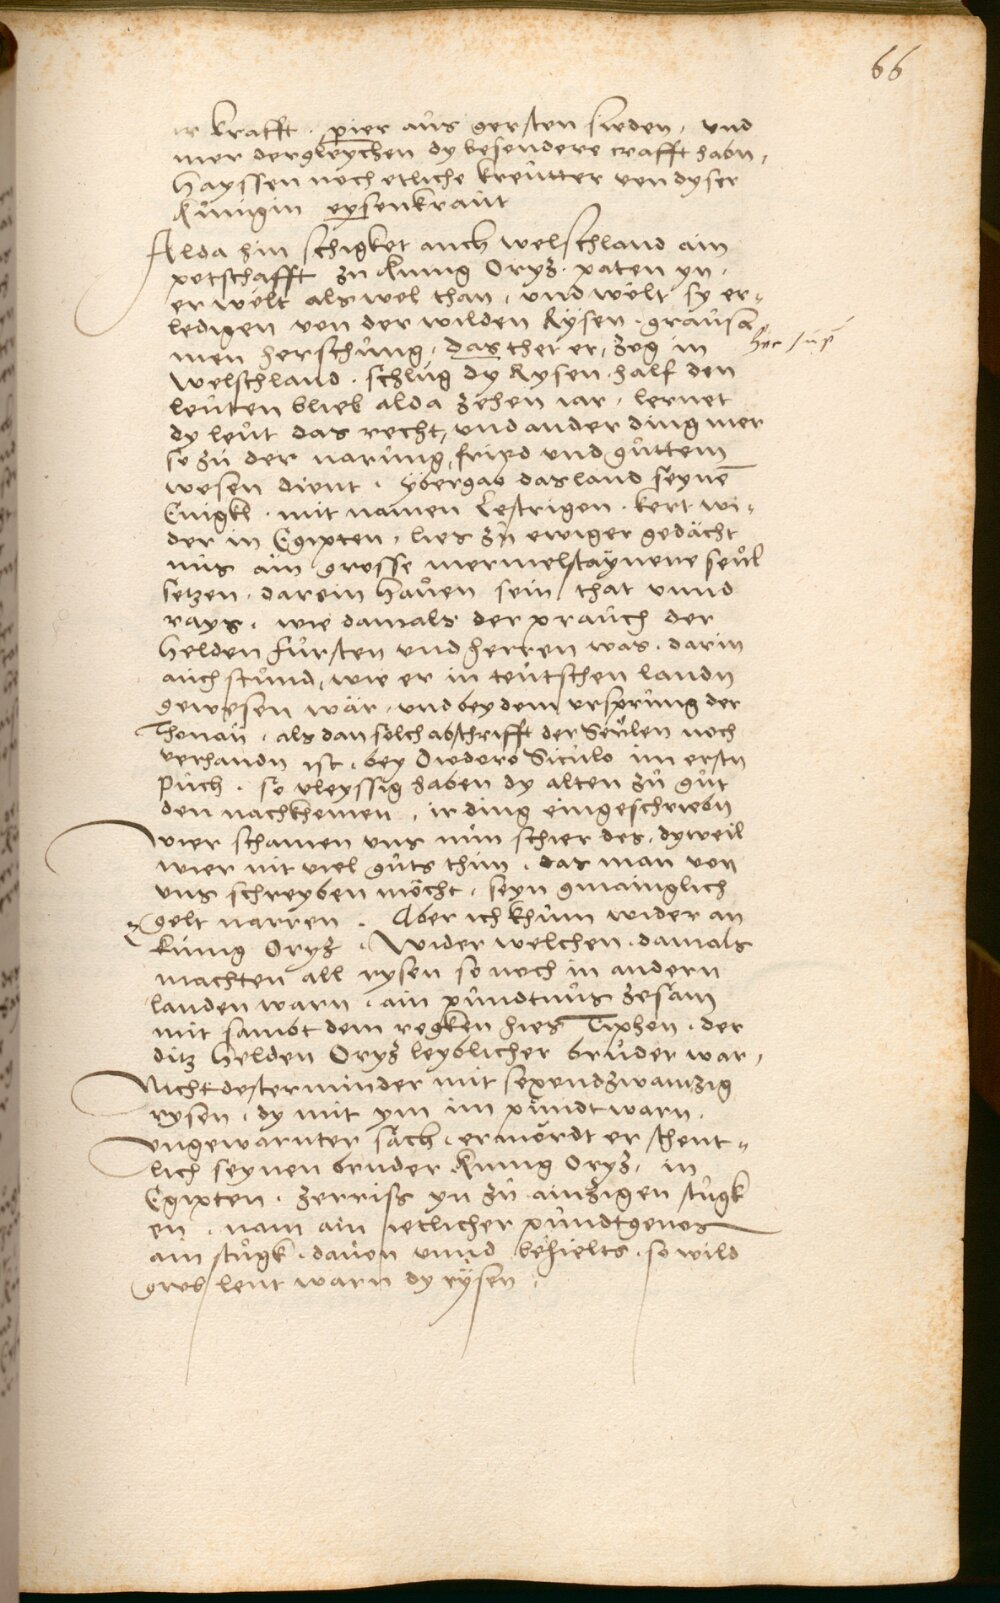 66
ir krafft . pier aůs gersten sieden, und
mer dergleychen dy besondere crafft habn,
Hayssen noch etliche kreůtter von dyser
Kůnigin eysenkraůt
Alda hin schigket auch welschland ain
potschafft zu Kunig Oryz . paten yn,
er wölt als wol than, und wölt sy er„
ledigen von der wilden Rysen . graůsa„
men herschůng, das thet er, zog in
welschland . schlůg dy Rysen . half den
leůtten blieb alda zehen iar, lernet
dy leůt das recht, und ander ding mer
so zů der narůng, fried und gůttem
wesen dient . ybergab das land seyne͂
Enigkl . mit namen Lestrigon . kert wi„
der in Egipten, lies zů ewiger gedächt
nůs ain grosse mermelstaynene seůl
setzen . darein haůen sein that unnd
rays, wie damals der praůch der
helden fůrsten und herren was . darin
aůch stůnd, wie er in teůtschen landn
gewesen wär, und bey dem ursprůng der
Thonaů, als dan solch abschrifft der Seůlen noch
verhandn ist, bey Diodoro Siculo im erstn
půch . so vleyssig haben dy alten zů gůt
den nachkhomen, ir ding eingeschriebn
wier schamen uns nůn schier des, dyweil
wier nit viel gůts thůn . das man von
uns schreyben möcht, seyn gmainglich
gelt narren . Aber ich khům wider an
kůnig Oryz . Wider welchen . damals
machten all rysen so noch in andern
landen warn . ain půndtnůs zesam
mit sambt dem regken hies Tiphon . der
ditz helden Oryz leyblicher brůder war,
Nicht dester minder mit sexundzwainzig
rysen, dy mit ym im půndt warn,
ungewarnter sach . ermördt er schent„
lich seynen bruder Kunig Oryz, in
Egipten . zerriss yn zů ainzigen stůgk
en . nam ain ietlicher půndtgenos
ain stůgk . daůon unnd behielts . so wild
grob leut warn dy rysen .